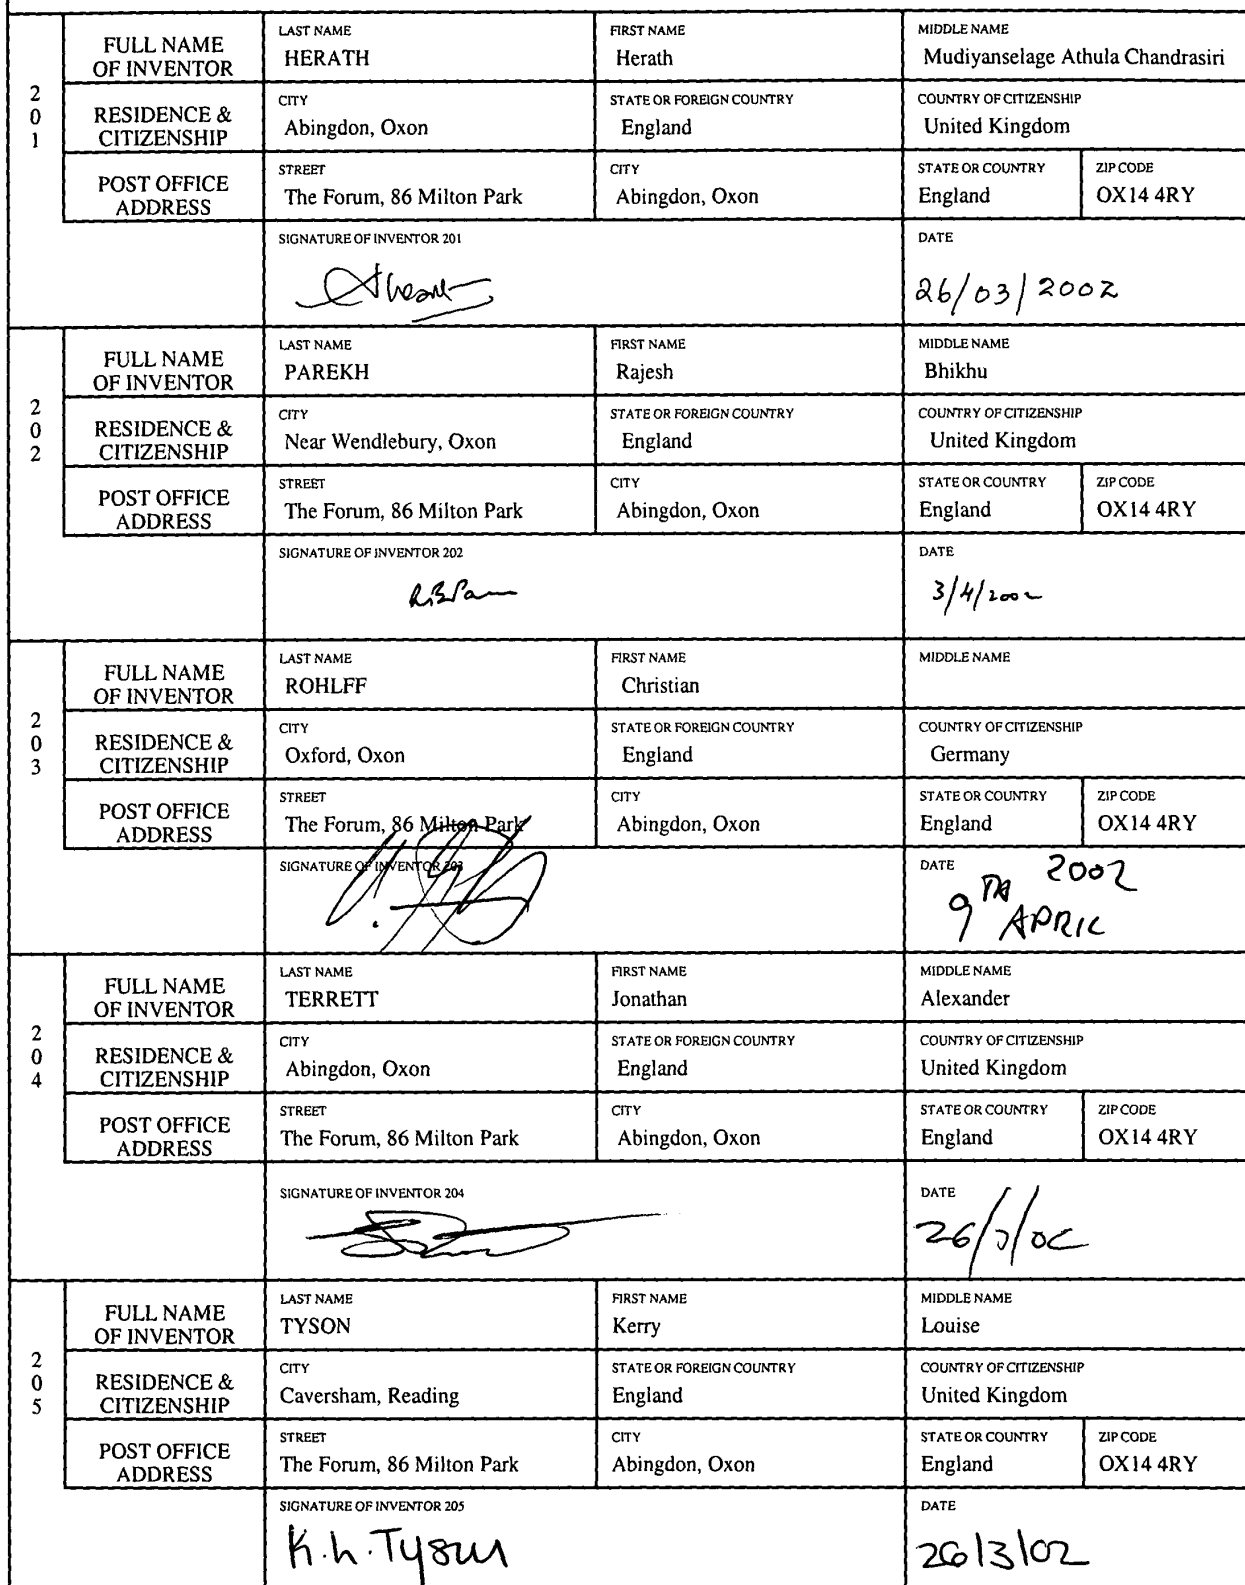 201
FULL NAME OF INVENTOR
LAST NAME
HERATH
FIRST NAME
Herath
MIDDLE NAME
Mudiyanselage Athula Chandrasiri
RESIDENCE & CITIZENSHIP
CITY
Abingdon, Oxon
STATE OR FOREIGN COUNTRY
England
COUNTRY OF CITIZENSHIP
United Kingdom
POST OFFICE ADDRESS
STREET
The Forum, 86 Milton Park
CITY
Abingdon, Oxon
STATE OR COUNTRY
England
ZIP CODE
OX14 4RY
SIGNATURE OF INVENTOR 201
DATE
26/03/2002
202
FULL NAME OF INVENTOR
LAST NAME
PAREKH
FIRST NAME
Rajesh
MIDDLE NAME
Bhikhu
RESIDENCE & CITIZENSHIP
CITY
Near Wendlebury, Oxon
STATE OR FOREIGN COUNTRY
England
COUNTRY OF CITIZENSHIP
United Kingdom
POST OFFICE ADDRESS
STREET
The Forum, 86 Milton Park
CITY
Abingdon, Oxon
STATE OR COUNTRY
England
ZIP CODE
OX14 4RY
SIGNATURE OF INVENTOR 202
DATE
3/4/2002
203
FULL NAME OF INVENTOR
LAST NAME
ROHLFF
FIRST NAME
Christian
MIDDLE NAME
RESIDENCE & CITIZENSHIP
CITY
Oxford, Oxon
STATE OR FOREIGN COUNTRY
England
COUNTRY OF CITIZENSHIP
Germany
POST OFFICE ADDRESS
STREET
The Forum, 86 Milton Park
CITY
Abingdon, Oxon
STATE OR COUNTRY
England
ZIP CODE
OX14 4RY
SIGNATURE OF INVENTOR 203
DATE
9TH APRIL 2002
204
FULL NAME OF INVENTOR
LAST NAME
TERRETT
FIRST NAME
Jonathan
MIDDLE NAME
Alexander
RESIDENCE & CITIZENSHIP
CITY
Abingdon, Oxon
STATE OR FOREIGN COUNTRY
England
COUNTRY OF CITIZENSHIP
United Kingdom
POST OFFICE ADDRESS
STREET
The Forum, 86 Milton Park
CITY
Abingdon, Oxon
STATE OR COUNTRY
England
ZIP CODE
OX14 4RY
SIGNATURE OF INVENTOR 204
DATE
205
FULL NAME OF INVENTOR
LAST NAME
TYSON
FIRST NAME
Kerry
MIDDLE NAME
Louise
RESIDENCE & CITIZENSHIP
CITY
Caversham, Reading
STATE OR FOREIGN COUNTRY
England
COUNTRY OF CITIZENSHIP
United Kingdom
POST OFFICE ADDRESS
STREET
The Forum, 86 Milton Park
CITY
Abingdon, Oxon
STATE OR COUNTRY
England
ZIP CODE
OX14 4RY
SIGNATURE OF INVENTOR 205
K.L.Tyson
DATE
26/3/02